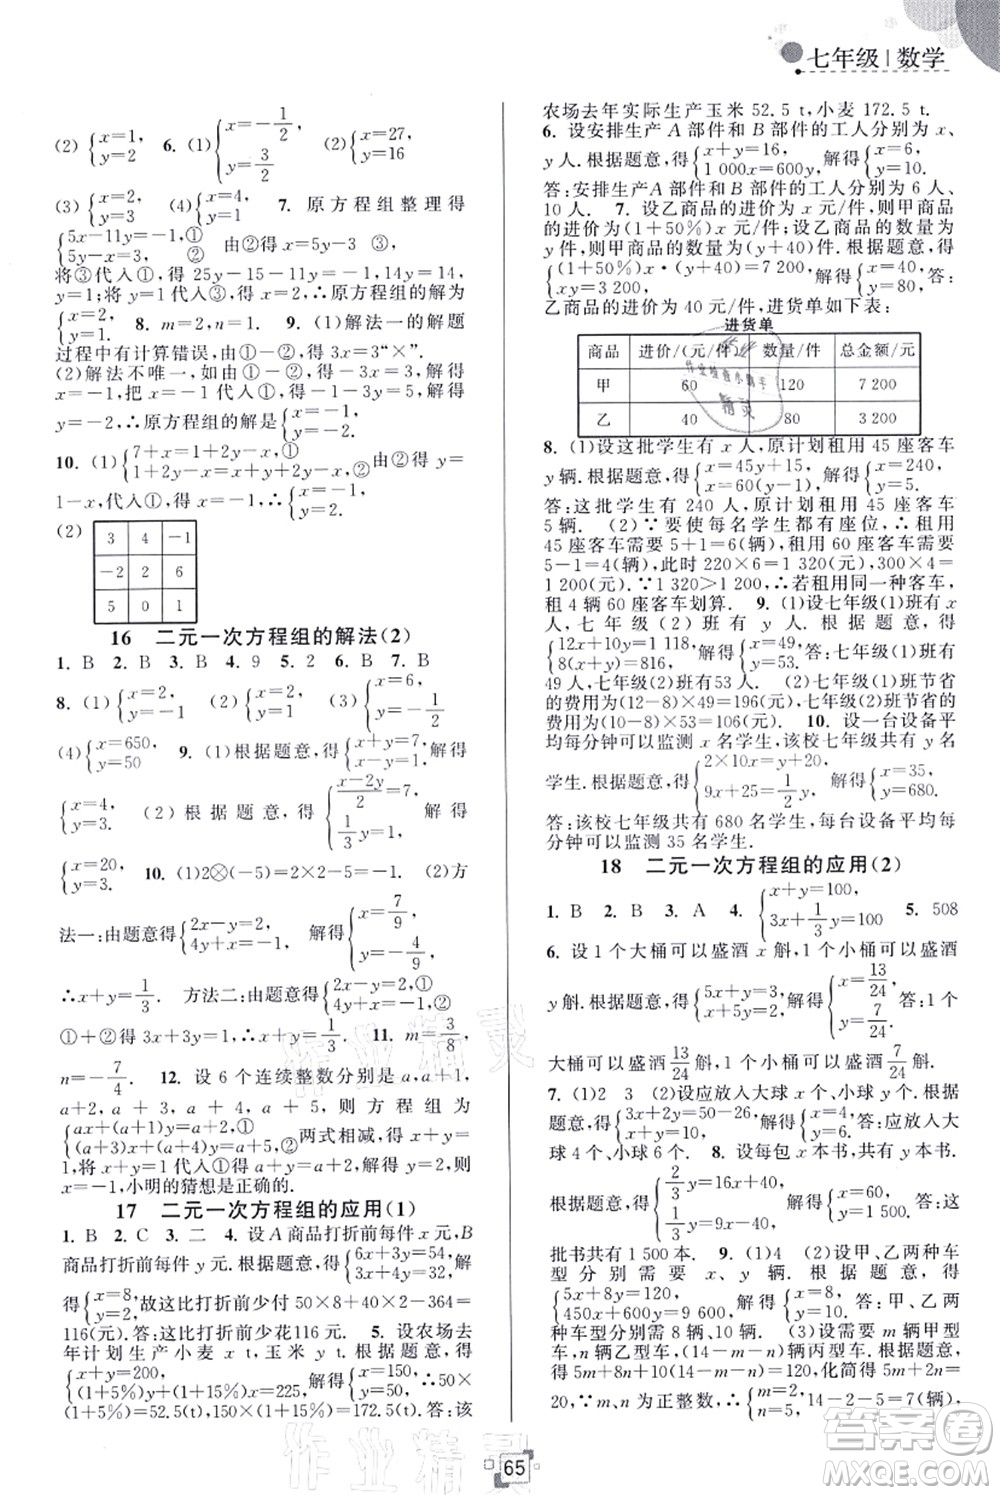 七年级|数学
(2) {x=1, y=2 6. (1) {x=-1/2 y=3/2 (2) {x=27, y=16
(3) {x=2, y=3 (4) {x=4, y=1 7. 原方程组整理得
{5x-11y=-1 ① 5y-x=3 ② 由②得 x=5y-3 ③
将③代入①,得 25y-15-11y=-1,∴14y=14,
y=1;将 y=1 代入③,得 x=2,∴原方程组的解为
{x=2, y=1. 8. m=2,n=1. 9. (1)解法一的解题
过程中有计算错误,由①-②,得 3x=-3“×”.
(2)解法不唯一,一般用加减法.由②-①,得 3x=
-3,x=-1,把 x=-1 代入①,得-1-3y=5,
y=-2,∴原方程组的解是{x=-1, y=-2.
10. (1){7+x+1=1+2y-x,① 1+2+4=1+2y-x,② 由②得 y=
1-x,代入①,得{x=-1, y=2.
(2)
3 4 -1
-2 2 6
5 0 1
16 二元一次方程组的解法(2)
1. B 2. B 3. B 4. 9 5. 2 6. B 7. B
8. (1){x=2, y=-1 (2){x=2, y=1 (3){x=6, y=-1/2
(4){x=650, y=50 9. (1)根据题意,得{x+y=7, x-y=1. 解得
{x=4, y=3. (2) 根据题意,得{(x-2y)/2=7, 1/3 y=1. 解得
{x=20, y=3. 10. (1)2⊗(-5)=2×2-5=-1 (2)方
法一:由题意得{2x-y=2, 4y+x=-1. 解得{x=7/9, y=-4/9
∴x+y=1/3. 方法二:由题意得{2x-y=2,① 4y+x=-1,②
①+②得 3x+3y=1,∴x+y=1/3. 11. m=3/8,
n=-7/4 12. 设 6 个连续整数分别是 a,a+1,
a+2,a+3,a+4,a+5,则方程组为
{ax+(a+1)y=a+2,① (a+3)x+(a+4)y=a+5,② 两式相减,得 x+y=
1,将 x+y=1 代入①得 a+y=a+2,∴y=2,x=
-1,∴小明的猜想是正确的.
17 二元一次方程组的应用(1)
1. B 2. C 3. 二 4. 设 A 商品打折前每件 x 元,B
商品打折前每件 y 元.根据题意,得{6x+3y=54, 3x+4y=32, 解
得{x=8, y=2, 故这比打折前少付 50×8+50×2-364=
116(元).答:这比打折前少花116 元. 5. 设农场去
年计划生产小麦 x t,玉米 y t.根据题意,得
{x+y=200, (1+5%)y+(1+15%)x=225, 解得{x=150, y=50, ∴50×
(1+5%)=52.5(t),150×(1+15%)=172.5(t).答:该
农场去年实际生产玉米 52.5 t,小麦 172.5 t.
6. 设安排生产 A 部件和 B 部件的工人分别为 x 人、
y 人.根据题意,得{x+y=16, 1 000x=600y, 解得{x=6, y=10.
答:安排生产A 部件和 B 部件的工人分别为 6 人、
10 人. 7. 设乙商品的进价为 x 元/件,数量为
y 件,则甲商品的进价为
(1+50%)x 元/件,数量为(y+40)件.根据题意,得
{(1+50%)x·(y+40)=7 200, xy=3 200, 解得{x=40, y=80, 答:
乙商品的进价为 40 元/件,进货单如下表:
进货单
商品 进价/(元/件) 数量/件 总金额/元
甲 60 120 7 200
乙 40 80 3 200
8. (1)设这批学生有 x 人,原计划租用 45 座客车
y 辆.根据题意,得{x=45y+15, x=60(y-1), 解得{x=240, y=5.
答:这批学生有 240 人,原计划租用 45 座客车
5 辆. (2)∵要使每名学生都有座位,∴租用
45 座客车需要 5+1=6(辆),租用 60 座客车需要
5-1=4(辆).此时 220×6=1 320(元),300×4=
1 200(元).∵1 320>1 200,∴若租用同一种客车,
租 4 辆 60 座客车划算. 9. (1)设七年级(1)班有
x 人,七年级(2)班有 y 人.根据题意,得
{12x+10y=1 118, 8(x+y)=816, 解得{x=49, y=53. 答:七年级(1)班有
49人,七年级(2)班有53 人. (2)七年级(1)班节省
的费用为(12-8)×49=196(元),七年级(2)班节省的
费用为(10-8)×53=106(元). 10. 设一台设备平
均每分钟可以监测 x 名学生,该校七年级共有 y 名
学生.根据题意,得{2×10x=y+20, 9x+25=1/2 y, 解得{x=35, y=680.
答:该校七年级共有 680 名学生,每台设备平均每分
钟可以监测 35 名学生.
18 二元一次方程组的应用(2)
1. B 2. B 3. A 4. {x+y=100, 3x+1/3 y=100 5. 508
6. 设 1 个大桶可以盛酒 x 斛,1 个小桶可以盛酒
y 斛.根据题意,得{5x+y=3, x+5y=2, 解得{x=13/24, y=7/24, 答:1 个
大桶可以盛酒13/24斛,1 个小桶可以盛酒7/24斛.
7. (1)2 3 (2)设应放入大球 x 个、小球 y 个.根据
题意,得{3x+2y=50-26, x+y=10, 解得{x=4, y=6. 答:应放入大
球 4 个、小球 6 个. 8. 设每包 x 本书,共 y 本书.
根据题意,得{2/3 y=16x+40, 1/3 y=9x-40, 解得{x=60, y=1 500. 答:这
批书共有 1 500 本. 9. (1)4 (2)设甲、乙两种车
型分别需要 x、y 辆.根据题意,得
{5x+8y=120, 450x+600y=9 600, 解得{x=8, y=10. 答:甲、乙两
种车型分别需要 8 辆、10 辆. (3)设需要 m 辆甲型
车、n 辆乙型车、(14-m-n)辆丙型车.根据题意,
得 5m+8n+10(14-m-n)=120,化简得 5m+2n=
20,∵m、n 均为正整数,∴{m=2, n=5, 14-2-5=7(辆),
65
答案圈
MXQE.COM
作业精灵
作业精灵